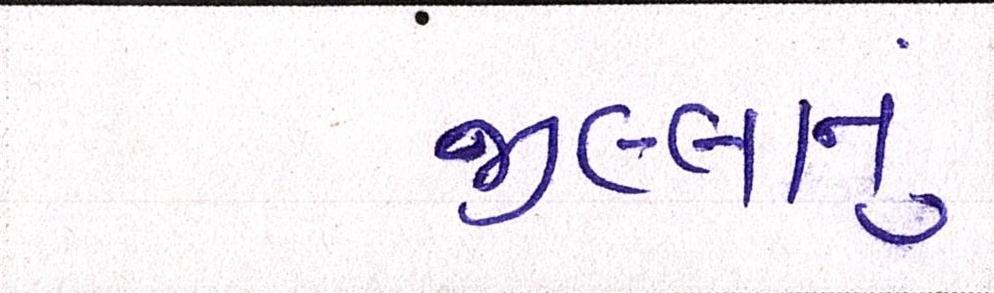 જીલ્લાનું